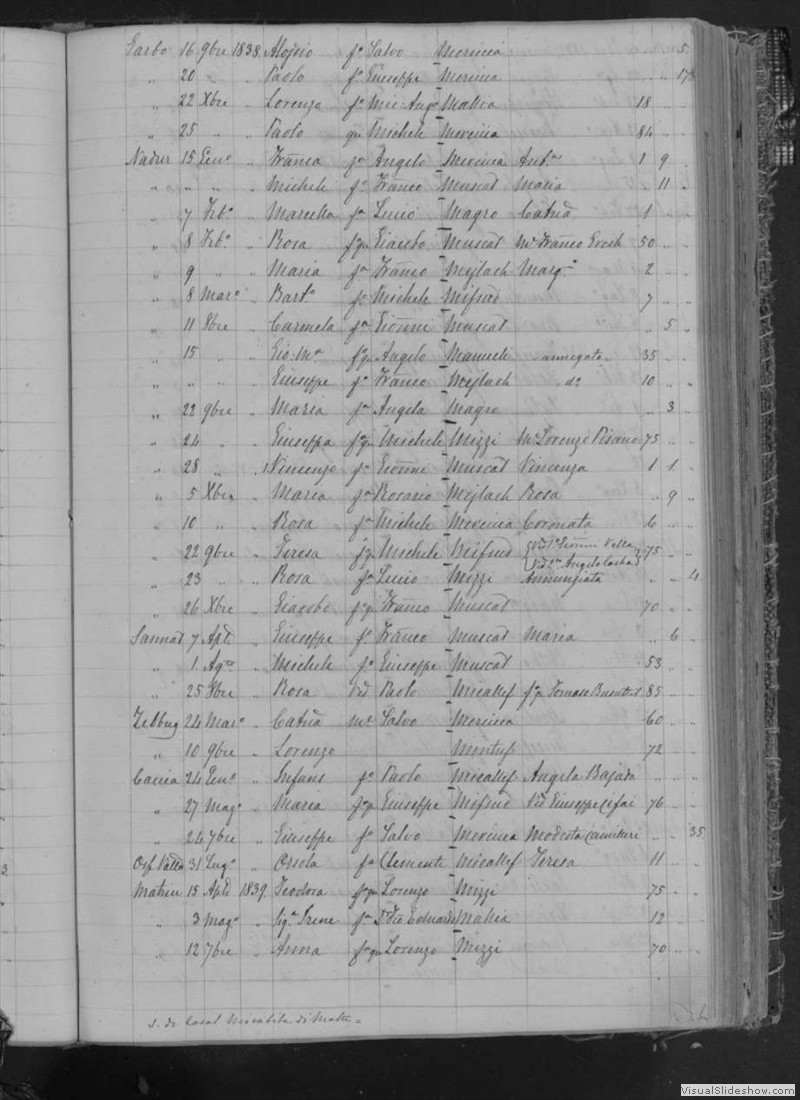 Garbo 16 9bre 1838 Alojsio fo Salvo Mercieca 5
" 20 " " Paolo fo Giuseppe Mercieca 17
" 22 Xbre " Lorenzo fo Mic: Ango Mallia 18
" 25 " " Paolo qm Michele Mercieca 84
Nadur 15 Geno " Franca fa Angelo Mercieca Anta 1 9
" " " " Michele fo Franco Muscat Maria " 11
" 7 Febo " Marcella fa Lucio Magro Catra 1
" 8 Febo " Rosa fqm Giacobo Muscat Me Franco Grech 50
" 9 " " Maria fa Franco Mejlach Marg 2
" 8 Maro " Barto fo Michele Mifsud 7
" 11 8bre " Carmela fa Gionni Muscat " 5
" 15 " " Gio: Ma fqm Angelo Mamueli annegato 35
" " " Giuseppe fo Franco Mejlach do 10
" 22 9bre " Maria fa Angelo Magro " 3
" 24 " " Giuseppa fqm Michele Mizzi Me Lorenzo Pisano 75
" 28 " " Vincenzo fo Gionni Muscat Vincenza 1 1
" 5 Xbre " Maria fa Rosario Mejlach Rosa " 9
" 10 " " Rosa fa Michele Mercieca Coronata 6
" 22 9bre " Teresa fqm Michele Mifsud Vid 1o Gionni Vella 75
Vid 2o Angelo Cachia
" 23 " " Rosa fa Lucio Mizzi Annunziata " " 4
" 26 Xbre " Giacobo fqm Franco Muscat 70
Sannat 7 Aple " Giuseppe fo Franco Muscat Maria " 6
" 1 Agto " Michele fo Giuseppe Muscat 53
" 25 8bre " Rosa Vid Paolo Micallef fqm Tomaso 85
Zebbug 24 Maro " Catra Me Salvo Mercieca 60
" 10 9bre " Lorenzo Mintuff 72
Caccia 24 Geno " Infans fo Paolo Micallef Angela Bajada
" 27 Mago " Maria fqm Giuseppe Mifsud Vid Giuseppe Cifai 76
" 24 7bre " Giuseppe fo Salvo Mercieca Modesta Camilleri " " 35
Osp Vallo 31 Lugo " Orsola fa Clemente Micallef Teresa 11
Matrice 15 Aple 1839 Teodora fqm Lorenzo Mizzi 75
" 3 Mago " Siga Irene fa Dr Eduardo Mallia 12
" 12 7bre " Anna fqm Lorenzo Mizzi 70
di Casal
VisualSlideshow.com